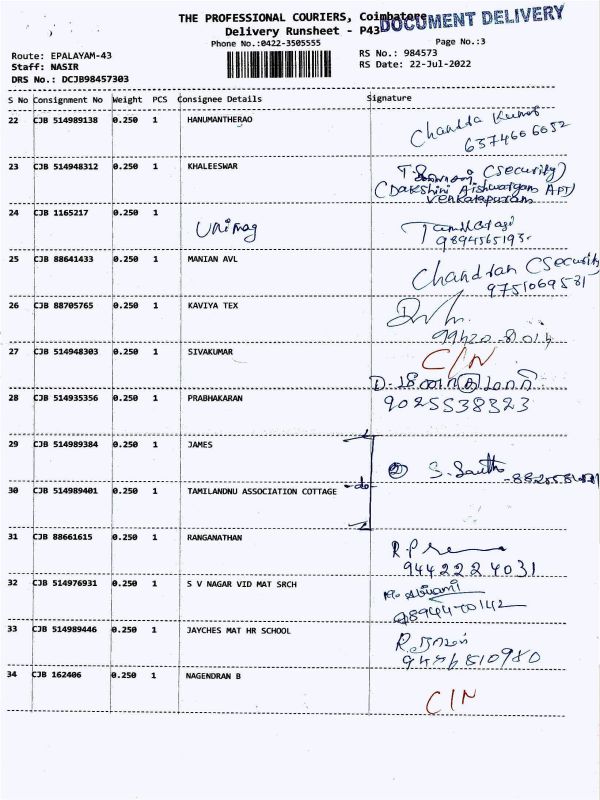 THE PROFESSIONAL COURIERS, Coimbatore
DOCUMENT DELIVERY
Delivery Runsheet - P43
Phone No.:0422-3505555
Page No.:3
Route: EPALAYAM-43
RS No.: 984573
Staff: NASIR
RS Date: 22-Jul-2022
DRS No.: DCJB98457303
S No Consignment No Weight PCS Consignee Details Signature
22 CJB 514989138 0.250 1 HANUMANTHERAO
Chandra Kumar
6374606052
23 CJB 514948312 0.250 1 KHALEESWAR
(Security)
(Dakshini Aishwaryam APT)
Venkatapuram
24 CJB 1165217 0.250 1 Unimag
9894565193
25 CJB 88641433 0.250 1 MANIAN AVL
Chandran (Security
9751069581
26 CJB 88705765 0.250 1 KAVIYA TEX
27 CJB 514948303 0.250 1 SIVAKUMAR
C/N
28 CJB 514935356 0.250 1 PRABHAKARAN
9025538323
29 CJB 514989384 0.250 1 JAMES
-do-
30 CJB 514989401 0.250 1 TAMILANDNU ASSOCIATION COTTAGE
31 CJB 88661615 0.250 1 RANGANATHAN
9442224031
32 CJB 514976931 0.250 1 S V NAGAR VID MAT SRCH
9894470142
33 CJB 514989446 0.250 1 JAYCHES MAT HR SCHOOL
34 CJB 162406 0.250 1 NAGENDRAN B
C/N